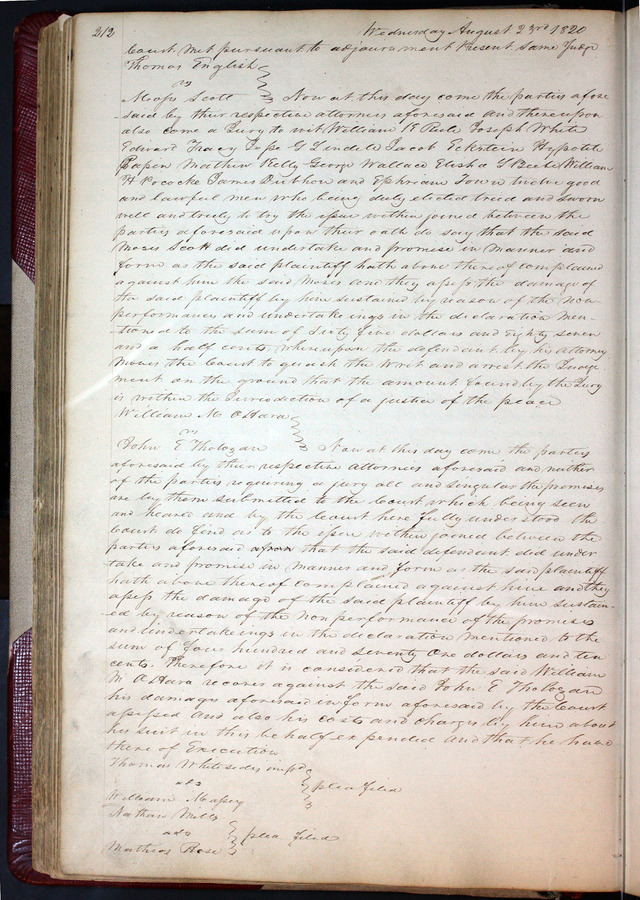 212 Wednesday August 23rd 1820
Court met pursuant to adjournment Present same Judge
Thomas English
vs
Moses Scott Now at this day come the parties afore
said by their respective attornies aforesaid and thereupon
also come a Jury to wit William K Rule Joseph White
Edward Tracy Jesse G Lindell Jacob Eckstein Hypolite
Papen Mathew Kelly George Wallace Elisha L Beebe William
H Pococke James and Ephriam Town twelve good
and lawful men who being duly elected tried and sworn
well and truly to try the issue within joined between the
parties aforesaid upon their oath do say that the said
Moses Scott did undertake and promise in manner and
form as the said plaintiff hath above thereof complained
against him the said Moses and they assess the damage of
the said plaintiff by him sustained by reason of the non
performances and undertakeings in the declaration men-
tioned to the sum of Sixty five dollars and Eighty seven
and a half cents, whereupon the defendant by his attorney
moves the Court to quash the Writ and arrest the Judge
ment on the ground that the amount found by the Jury
is within the Jurisdiction of a justice of the peace
William M OHara
vs
John E Tholozan Now at this day come the parties
aforesaid by their respective attornies aforesaid and neither
of the parties requiring a jury all and singular the premises
are by them submitted to the Court which being seen
and heard and by the Court here fully understood the
Court do find as to the issue within joined between the
parties aforesaid that the said defendant did under
take and promise in manner and form as the said plaintiff
hath above thereof complained against him and they
assess the damage of the said plaintiff by him sustain-
ed by reason of the nonperformance of the promises
and undertakeings in the declaration mentioned to the
sum of four hundred and seventy one dollars and ten
cents. Therefore it is considered that the said William
M OHara recover against the said John E Tholozan
his damages aforesaid in form aforesaid by the Court
assessed and also his costs and charges by him about
his suit in this behalf expended and that he have
thereof Execution
Thomas Whitesides impd
ads plea filed
William Massey
Nathan Mills
ads plea filed
Mathias Rose